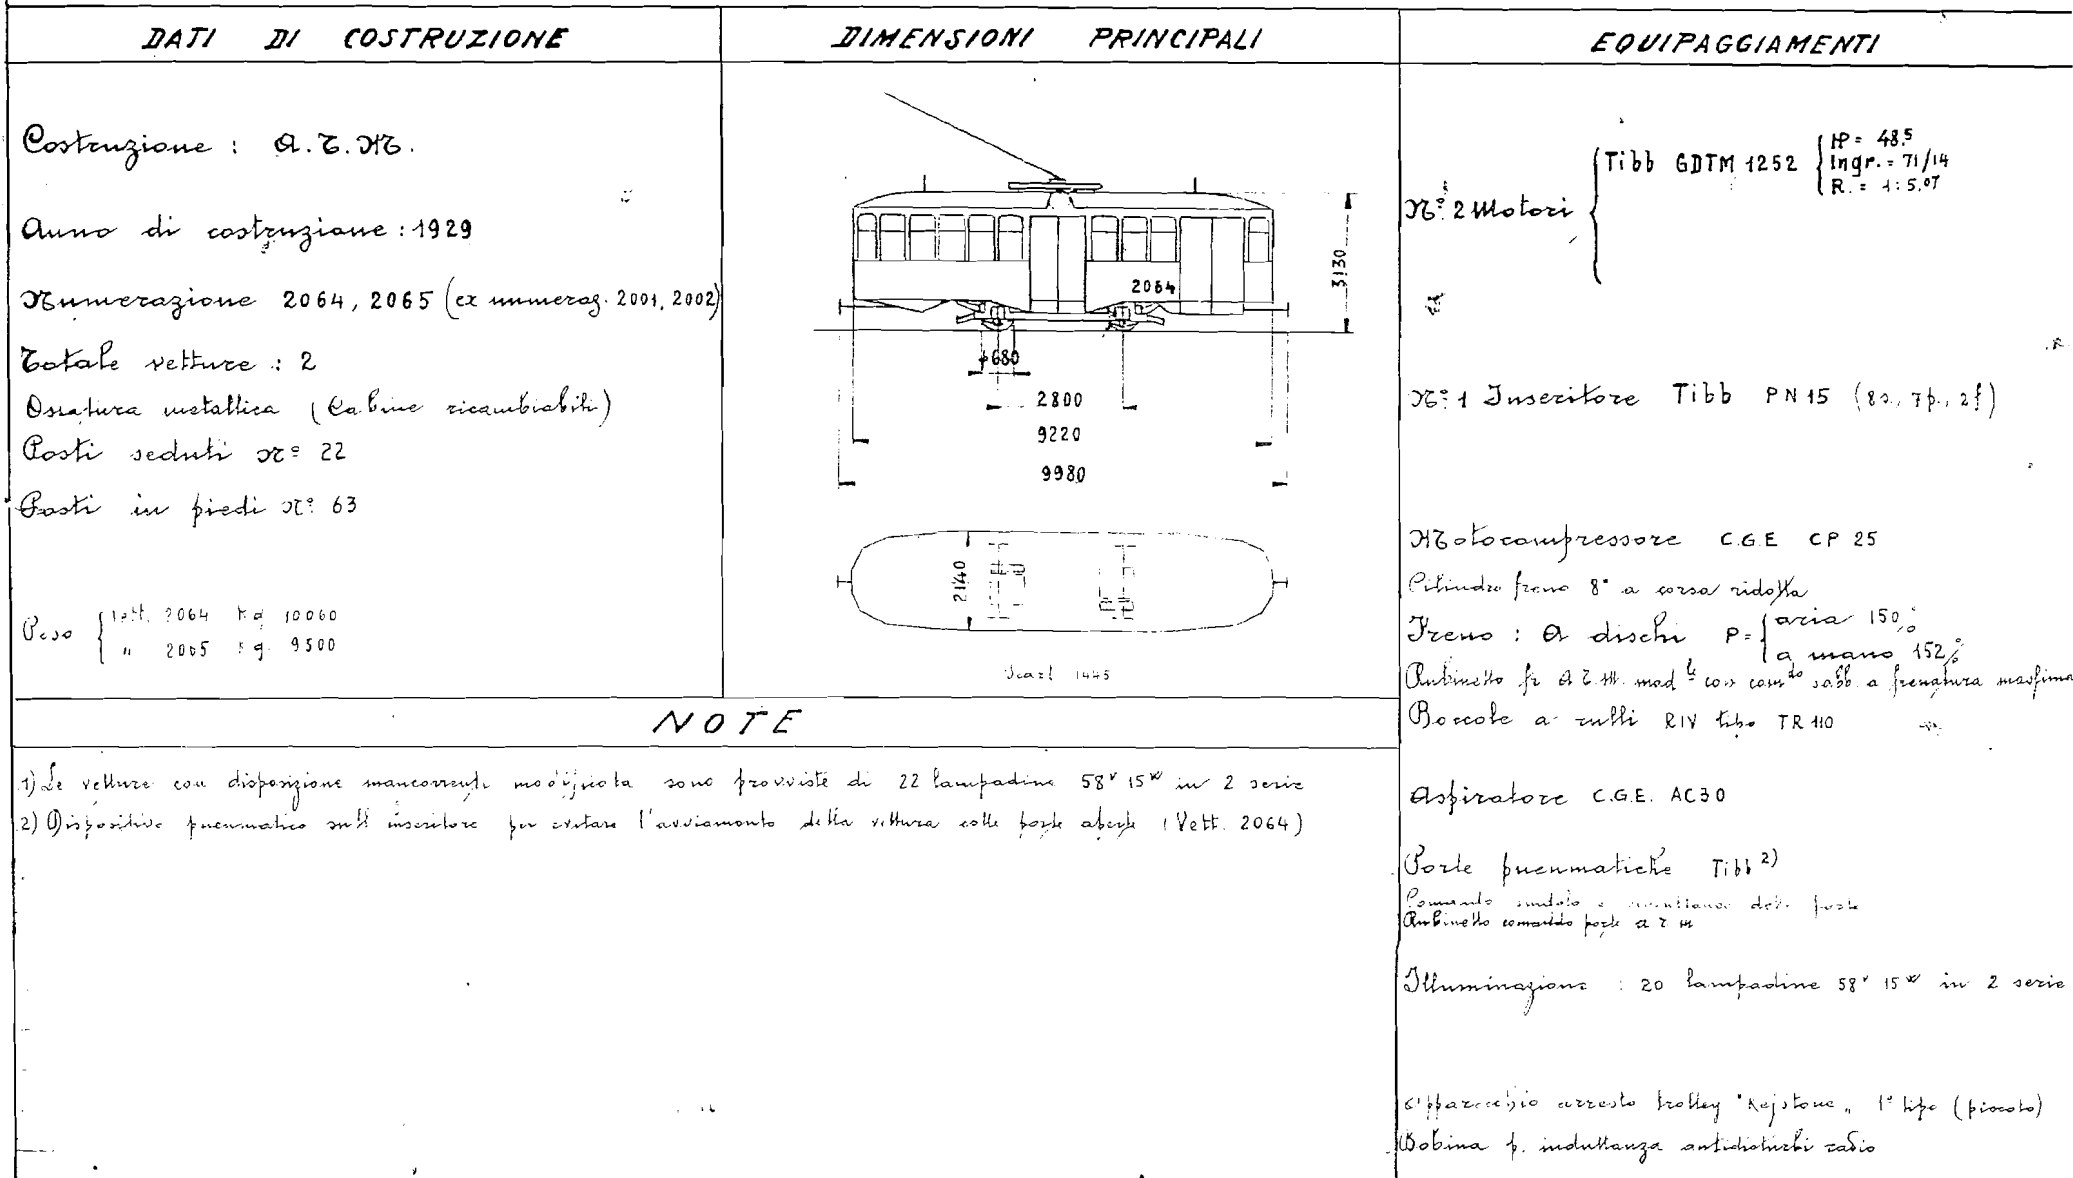 DATI DI COSTRUZIONE
Costruzione : A.T.M.
Anno di costruzione : 1929
Numerazione 2064, 2065 (ex numeraz. 2001, 2002)
Totale vetture : 2
Ossatura metallica (Cabine ricambiabili)
Posti seduti N° 22
Posti in piedi N° 63
Peso { Vett. 2064 Kg 10060
" 2065 Kg. 9500
DIMENSIONI PRINCIPALI
2064
3130
φ680
2800
9220
9980
2140
1445
EQUIPAGGIAMENTI
N° 2 Motori { Tibb GDTM 1252 { HP = 48.5
Ingr. = 71/14
R. = 1:5,07
N° 1 Inseritore Tibb PN 15 (8s., 7p., 2f)
Motocompressore C.G.E CP 25
Cilindro freno 8" a corsa ridotta
Freno : A dischi P = { aria 150%
a mano 152%
Rubinetto fr A.T.M. mod. con com.do sabb. a frenatura massima
Boccole a rulli RIV tipo TR 110
Aspiratore C.G.E. AC30
Porte pneumatiche Tibb 2)
Comando delle porte
Rubinetto comando porte A T M
Illuminazione : 20 lampadine 58V 15W in 2 serie
Apparecchio arresto trolley "Kejstone" 1° tipo (piccolo)
Bobina p. induttanza antidisturbi radio
NOTE
1) Le vetture con disposizione mancorrenti modificata sono provviste di 22 lampadine 58V 15W in 2 serie
2) Dispositivo pneumatico sull'inseritore per evitare l'avviamento della vettura colle porte aperte (Vett. 2064)